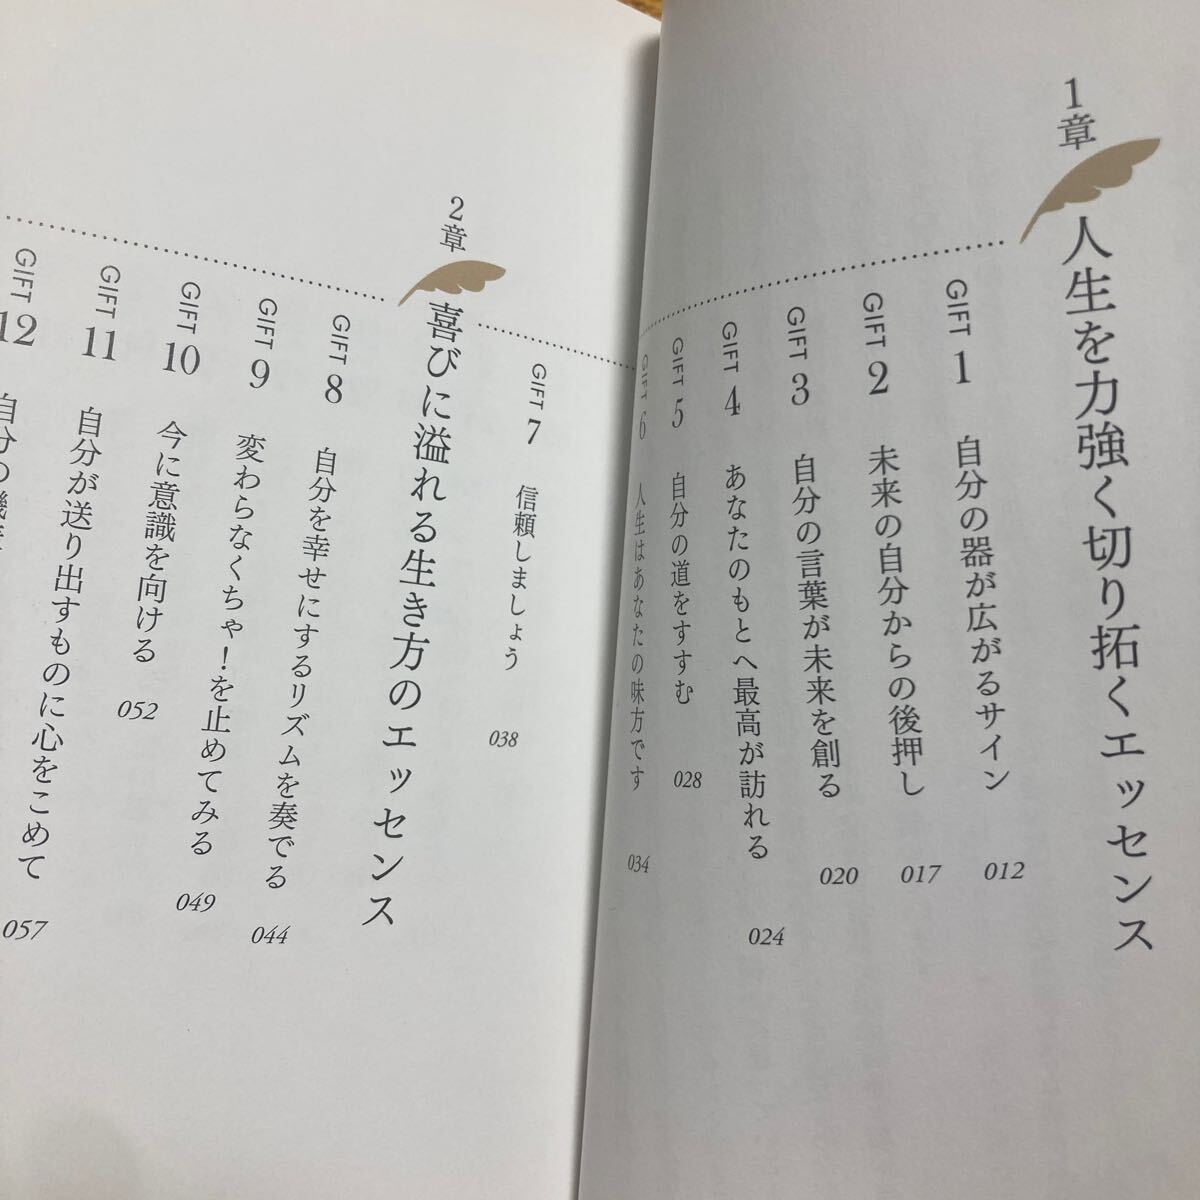 1章 人生を力強く切り拓くエッセンス
GIFT 1 自分の器が広がるサイン 012
GIFT 2 未来の自分からの後押し 017
GIFT 3 自分の言葉が未来を創る 020
GIFT 4 あなたのもとへ最高が訪れる 024
GIFT 5 自分の道をすすむ 028
GIFT 6 人生はあなたの味方です 034
GIFT 7 信頼しましょう 038
2章 喜びに溢れる生き方のエッセンス
GIFT 8 自分を幸せにするリズムを奏でる 044
GIFT 9 変わらなくちゃ！を止めてみる 049
GIFT 10 今に意識を向ける 052
GIFT 11 自分が送り出すものに心をこめて 057
GIFT 12 自分の